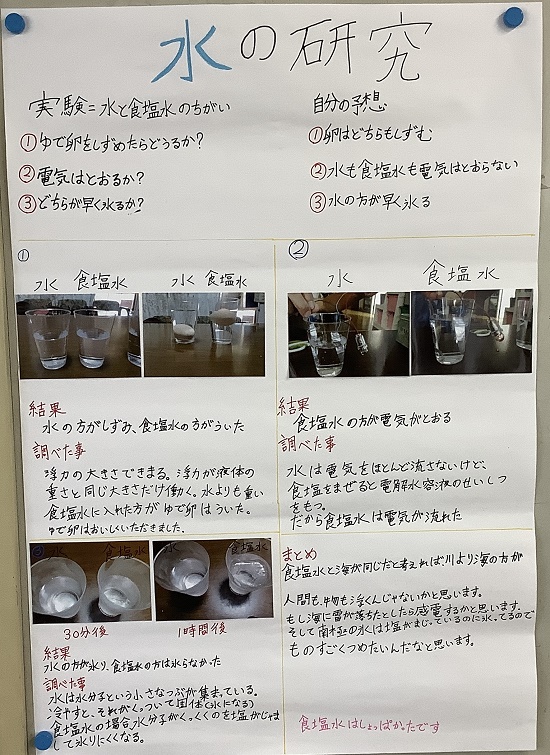 水の研究
実験=水と食塩水のちがい
①ゆで卵をしずめたらどうるか?
②電気はとおるか?
③どちらが早く氷るか?
自分の予想
①卵はどちらもしずむ
②水も食塩水も電気はとおらない
③水の方が早く氷る
①
水 食塩水 水 食塩水
結果
水の方がしずみ、食塩水の方がういた
調べた事
浮力の大きさできまる。浮力が液体の
重さと同じ大きさだけ働く。水よりも重い
食塩水に入れた方がゆで卵はういた。
ゆで卵はおいしくいただきました。
②
水 食塩水
結果
食塩水の方が電気がとおる
調べた事
水は電気をほとんど流さないけど、
食塩をまぜると電解水容液のせいしつ
をもつ。
だから食塩水は電気が流れた
③ 水 食塩水 水 食塩水
30分後 1時間後
結果
水の方が氷り、食塩水の方は氷らなかった
調べた事
水は水分子という小さなつぶが集まっている。
冷やすと、それがくっついて固体(氷になる)
食塩水の場合、水分子がくっくくのを塩がじゃま
して氷りにくくなる。
まとめ
食塩水と海が同じだと考えれば川より海の方が
人間も、物も浮くんじゃないかと思います。
もし海に雷が落ちたとしたら感電するかと思います。
そして南極の氷は塩がまじっているのに氷ってるので
ものすごくつめたいんだなと思います。
食塩水はしょっぱかったです